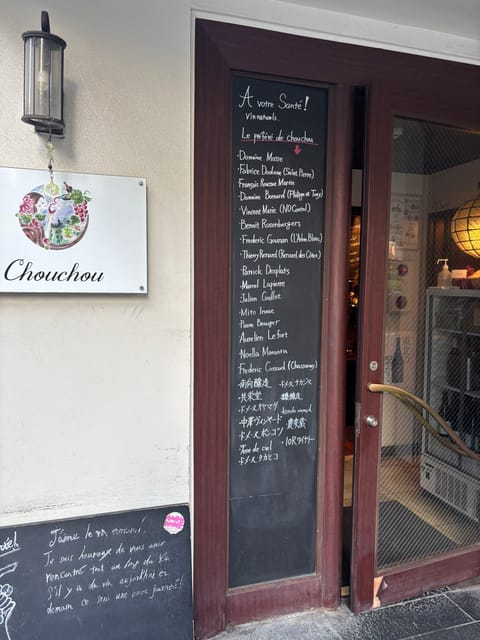 Chouchou
A votre Santé!
Vin naturels.
Le préféré de chouchou
・Domaine Mosse
・Fabrice Dodane (Saint Pierre)
François Rousset Martin
・Domaine Bornard (Philippe et Tony)
・Vincent Marie (NO Control)
Benoit Rosenberger
・Frederic Gounan (L'Arbre Blanc)
・Thierry Renard (Renard des Côtes)
・Patrick Desplats
・Marcel Lapierre
Julien Guillot
・Mito Inoue
Pierre Beauger
・Aurelien Lefort
・Noella Morantin
Frederic Cossard (Chassornay)
・南向醸造 ・ドメーヌナカジマ
・共栄堂
・ドメーヌオヤマダ
・中澤ヴィンヤード ・農楽蔵
・ドメーヌモンコウ
・Terre de ciel ・10Rワイナリー
・ドメーヌタカヒコ
J'aime le vin
Je suis heureux de vous avoir
rencontré tout au long du vin
S'il y a du vin aujourd'hui et
demain ce sera une bonne journée!!